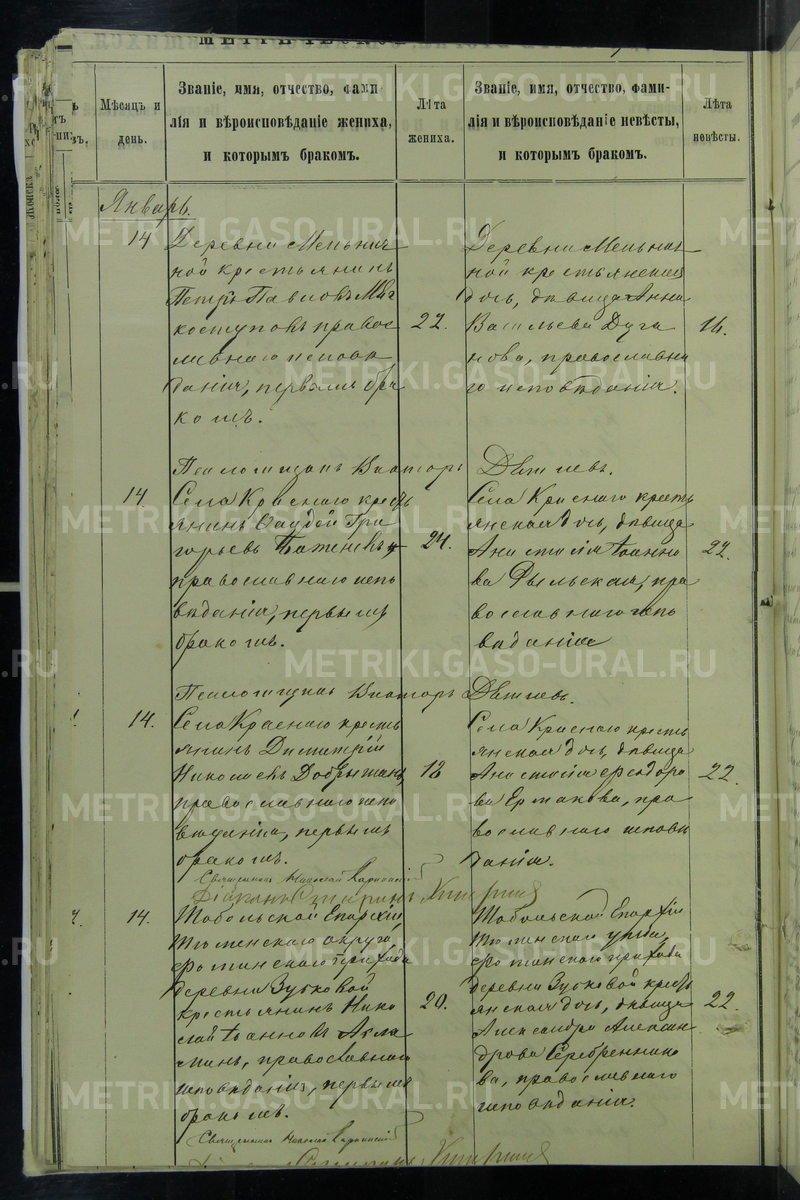 Мѣсяцъ и день.
Званіе, имя, отчество, фами-
лія и вѣроисповѣданіе жениха,
и которымъ бракомъ.
Лѣта жениха.
Званіе, имя, отчество, фами-
лія и вѣроисповѣданіе невѣсты,
и которымъ бракомъ.
Лѣта невѣсты.
Январь.
14
Деревни Мельнич
ной крестьянинъ
Петръ Павловъ
правос
лавнаго исповѣ
данія, первымъ бра
комъ.
22.
Деревни Мельнич
ной крестьянская
дочь, дѣвица Анна
Васильева Дуга
нова, православна
го исповѣданія.
16.
Псаломщикъ Викторъ Дѣтлевъ.
14.
Села Краснаго кресть
янинъ Григорьевъ
православнаго испо
вѣданія, первымъ
бракомъ.
24.
Села Краснаго кресть
янская дочь, дѣвица
Анастасія Іоанно
ва Рыльская, пра
вославнаго испо
вѣданія
22.
Псаломщикъ Викторъ Дѣтлевъ.
14.
Села Краснаго кресть
янинъ Димитрій
Николаевъ Добрынинъ,
православнаго испо
вѣданія, первымъ
бракомъ.
18
Села Краснаго кресть
янская дочь, дѣвица
Анастасія Ѳеодоро
ва Ермакова, пра
вославнаго исповѣ
данія.
22.
Священникъ Николай
Діаконъ
14.
Тобольской Епархіи
Тюменскаго округа,
прихода
деревни Зубковой
крестьянинъ Нико
лай Іоанновъ
православнаго
исповѣданія, первымъ
бракомъ.
20.
Тобольской Епархіи
Тюменскаго уѣзда,
прихода
деревни Зубковой кресть
янская дочь, дѣвица
Александра Алексан
дрова Серебреннико
ва, православнаго
исповѣданія.
22.
Священникъ Николай
METRIKI.GASO-URAL.RU